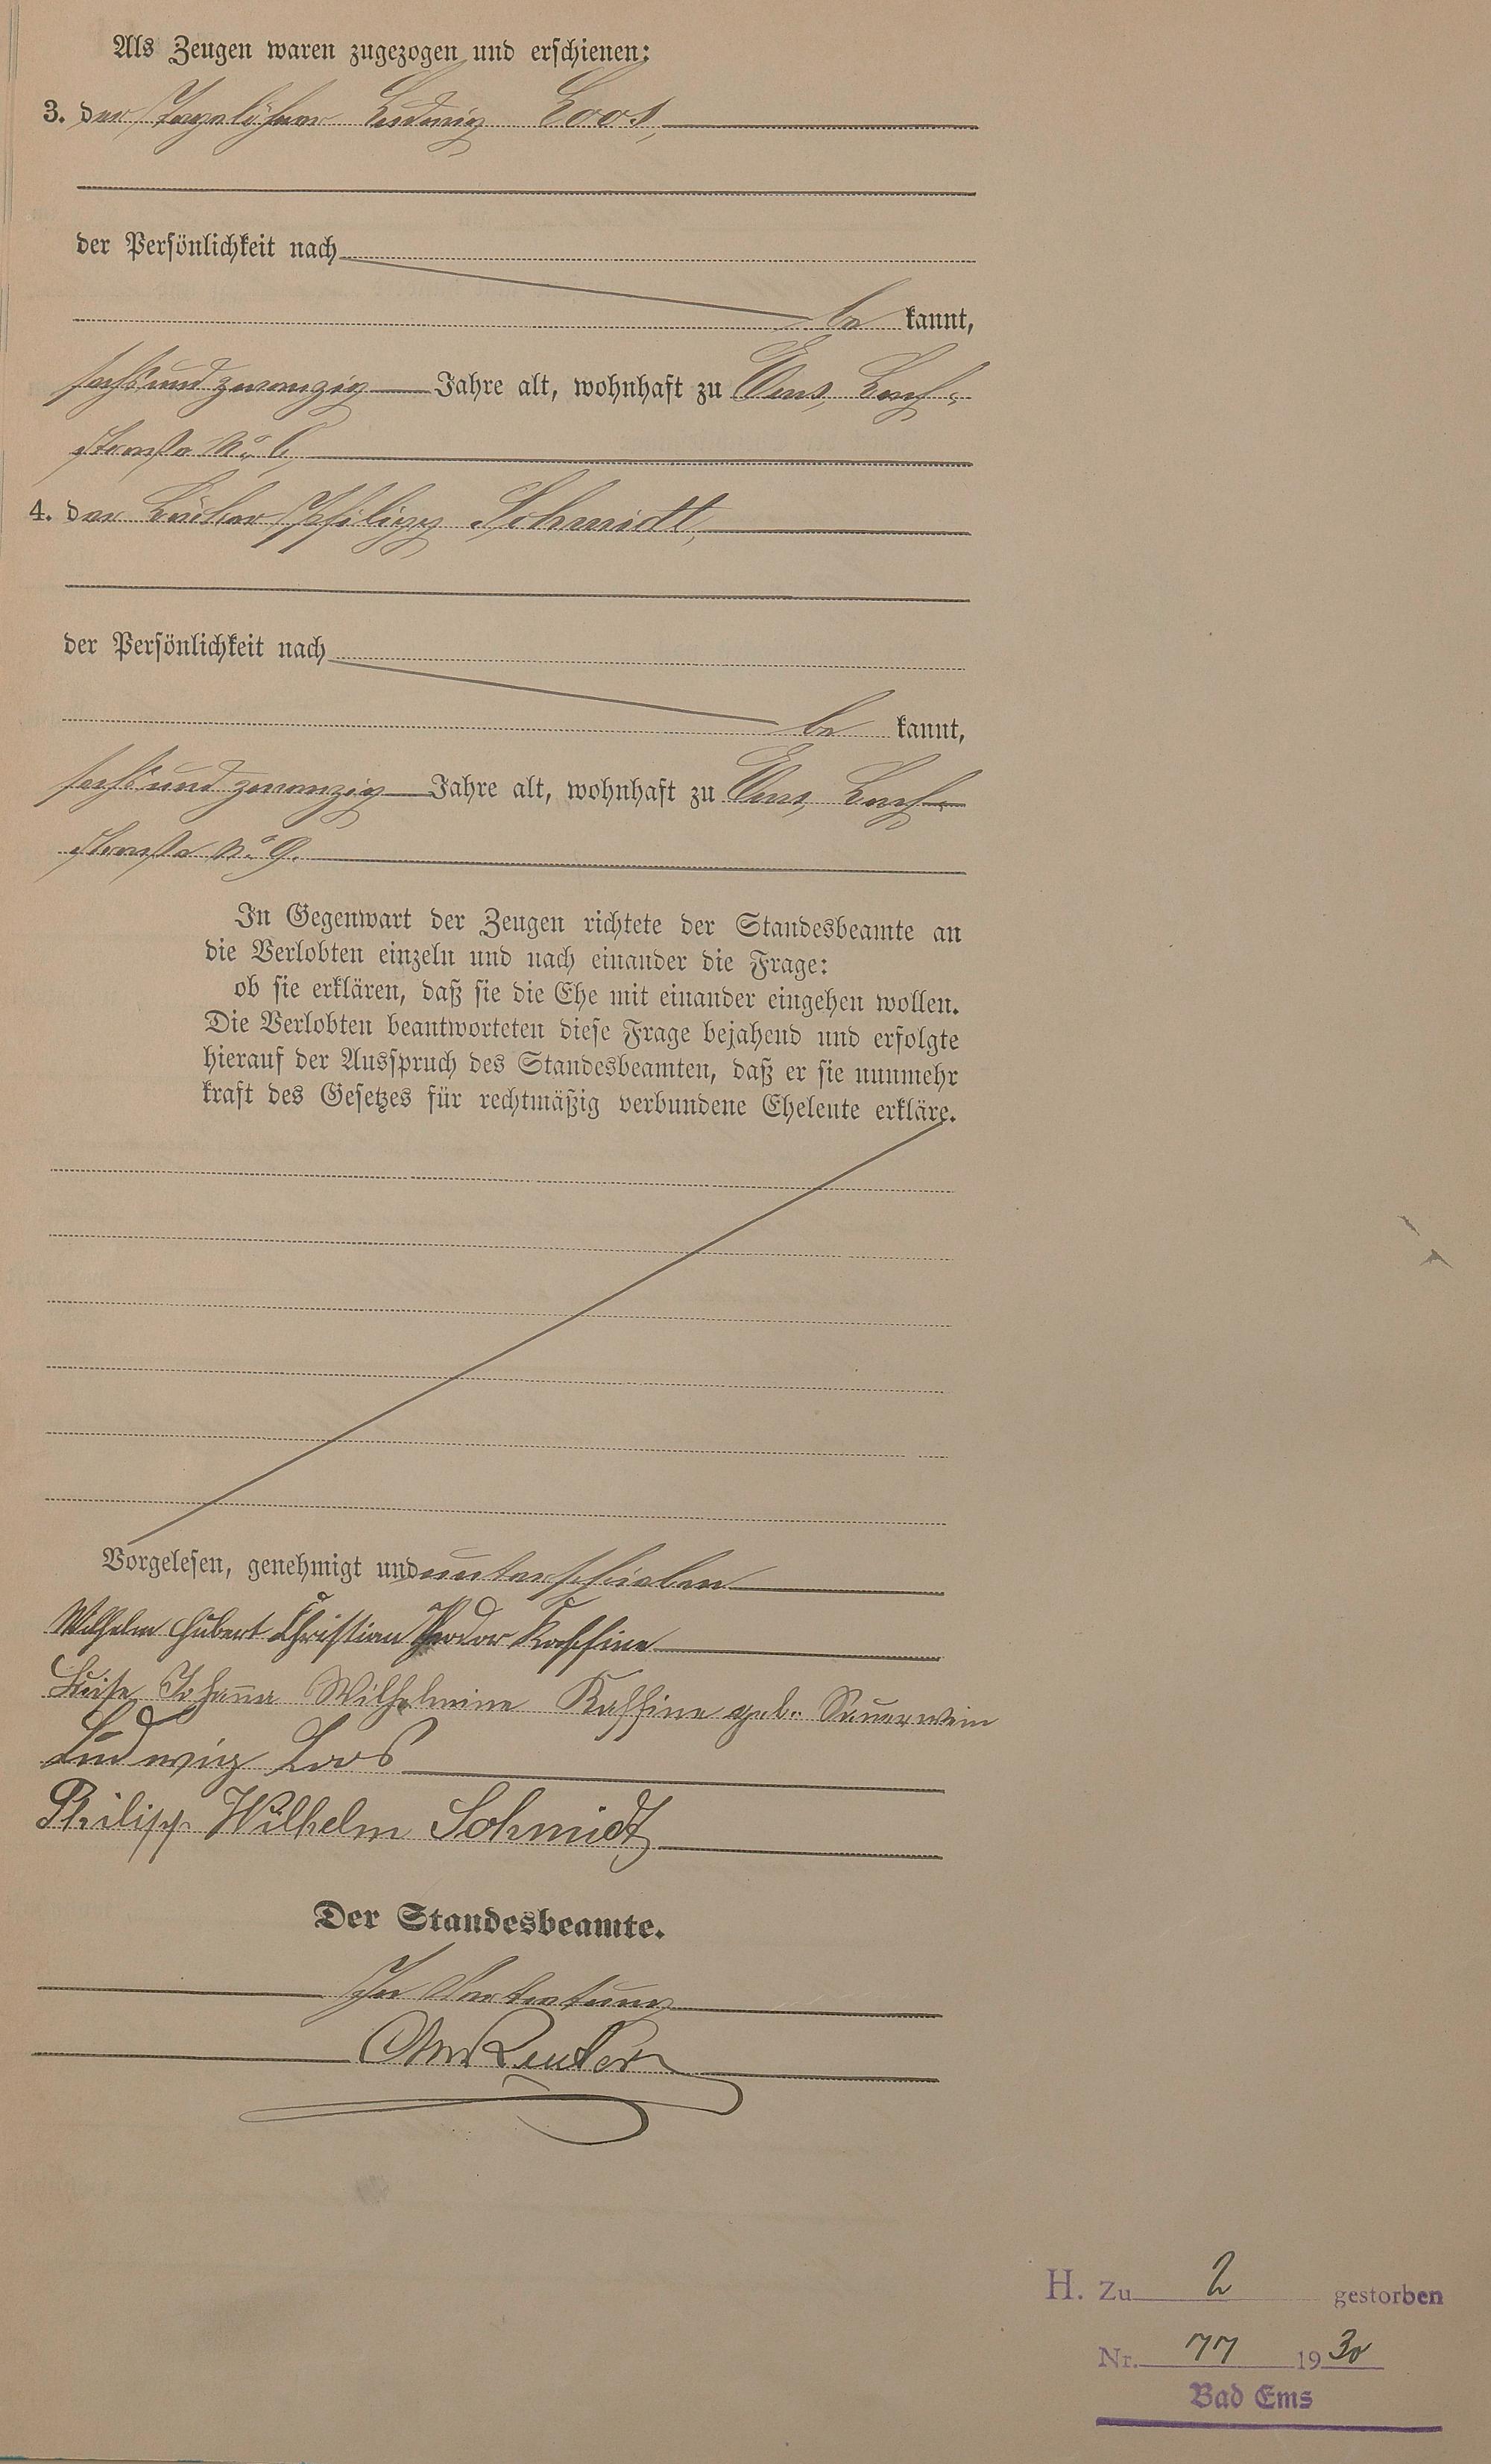 Als Zeugen waren zugezogen und erschienen:
3. der Tagelöhner Ludwig Loos,
der Persönlichkeit nach
be kannt,
sechsundzwanzig Jahre alt, wohnhaft zu Ems, Bach-
straße No. 6,
4. der Bäcker Philipp Schmidt,
der Persönlichkeit nach
be kannt,
sechsundzwanzig Jahre alt, wohnhaft zu Ems, Bach-
straße No. 9.
In Gegenwart der Zeugen richtete der Standesbeamte an
die Verlobten einzeln und nach einander die Frage:
ob sie erklären, daß sie die Ehe mit einander eingehen wollen.
Die Verlobten beantworteten diese Frage bejahend und erfolgte
hierauf der Ausspruch des Standesbeamten, daß er sie nunmehr
kraft des Gesetzes für rechtmäßig verbundene Eheleute erkläre.
Vorgelesen, genehmigt und unterschrieben
Wilhelm Hubert Christian Theodor Kaffine
Luise Johanna Wilhelmine Kaffine geb. Sauerwein
Ludwig Loos
Philipp Wilhelm Schmidt
Der Standesbeamte.
In Vertretung
Reuter
H. Zu 2 gestorben
Nr. 77 1930
Bad Ems